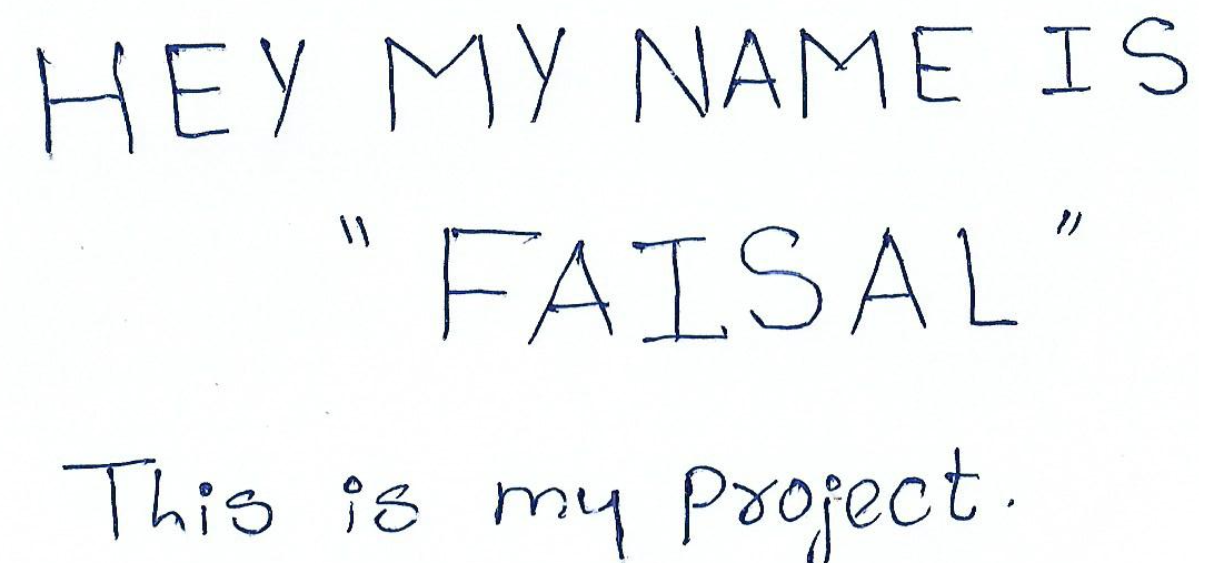 HEY MY NAME IS
"FAISAL"
This is my project.